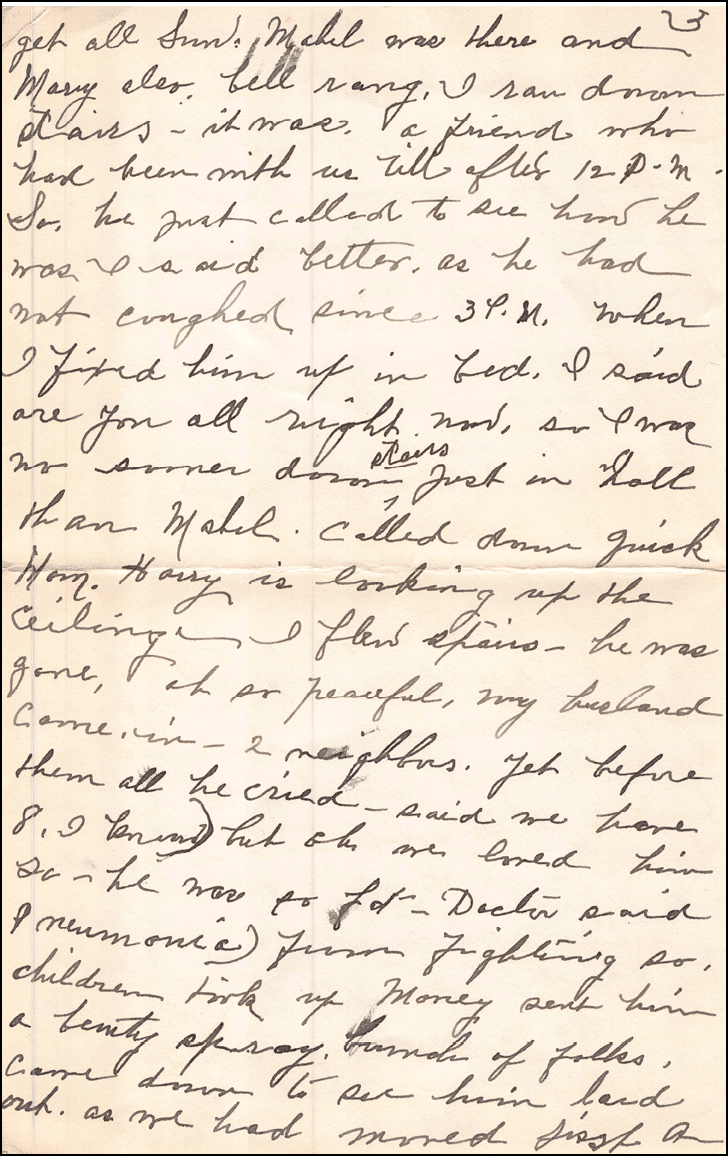 3
get all Sund. Mabel was there and
Mary also. bell rang. I ran down
stairs - it was. a friend who
had been with us till after 12 P.M.
So. he just called to see how he
was I said better. as he had
not coughed since 3 P.M. When
I fixed him up in bed. I said
are you all right now, so I was
no sooner down stairs just in Hall
than Mabel. Called down quick
Mom. Harry is looking up the
Ceiling I flew upstairs - he was
gone, oh so peaceful, my husband
Came. in - 2 neighbors. yet before
them all he cried - said we have
8. I know) but oh we loved him
so - he was so - Doctor said
Pneumonia) from fighting so.
children took up Money sent him
a beuty spray. bunch of folks.
Came down to see him laid
out. as we had moved just a